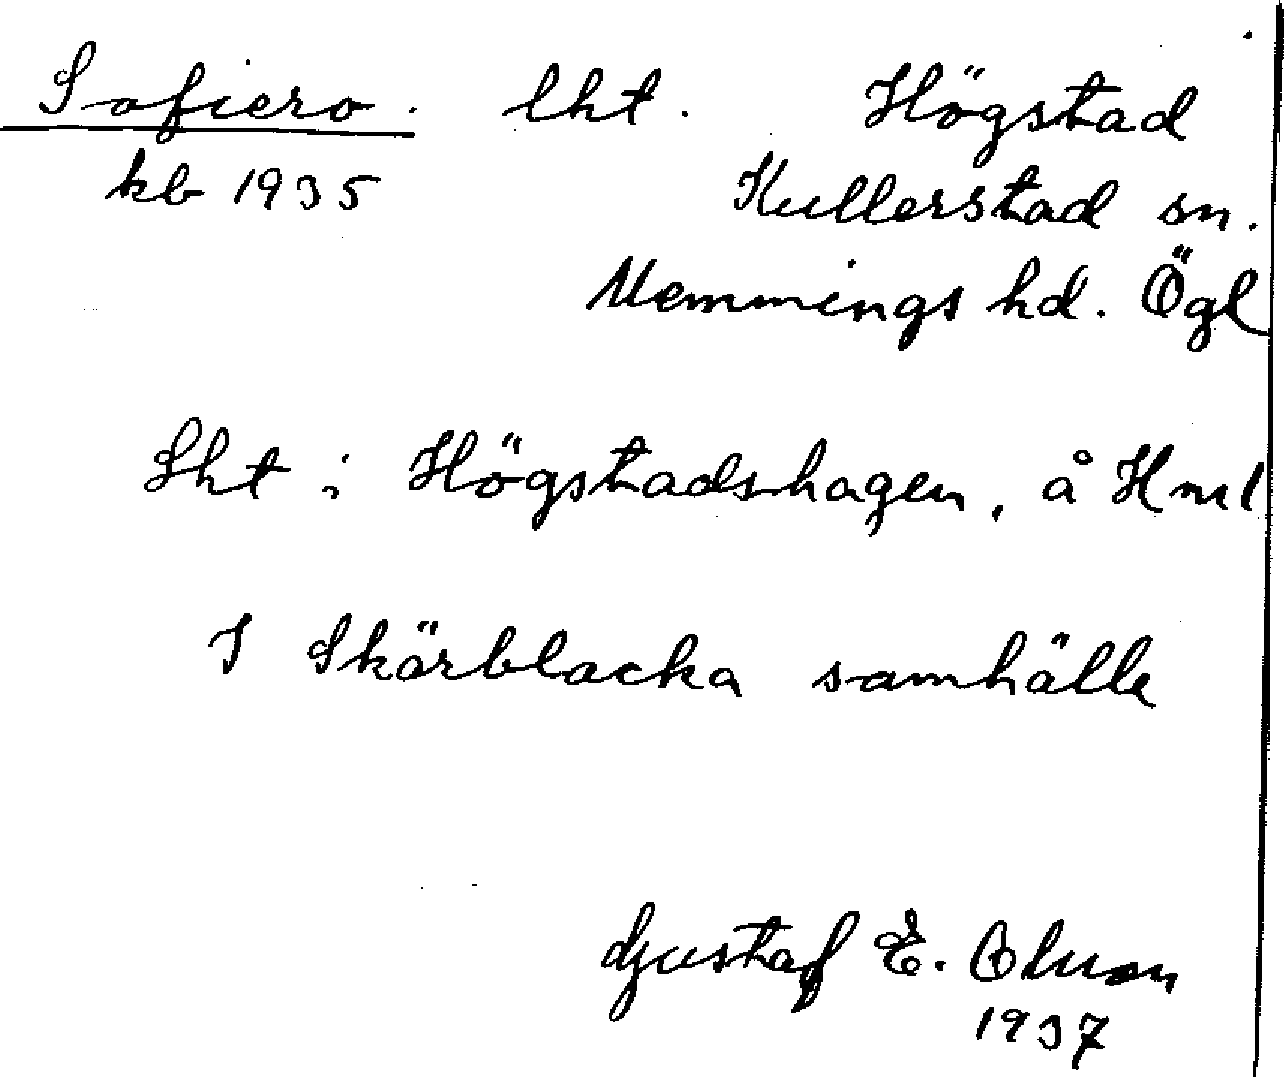 Sofiero. lht. Högstad
kb 1935 Kullerstad sn.
Memmings hd. Ögl
Lht i Högstadshagen, å Hml
I Skärblacka samhälle
Gustaf E. Olson
1937